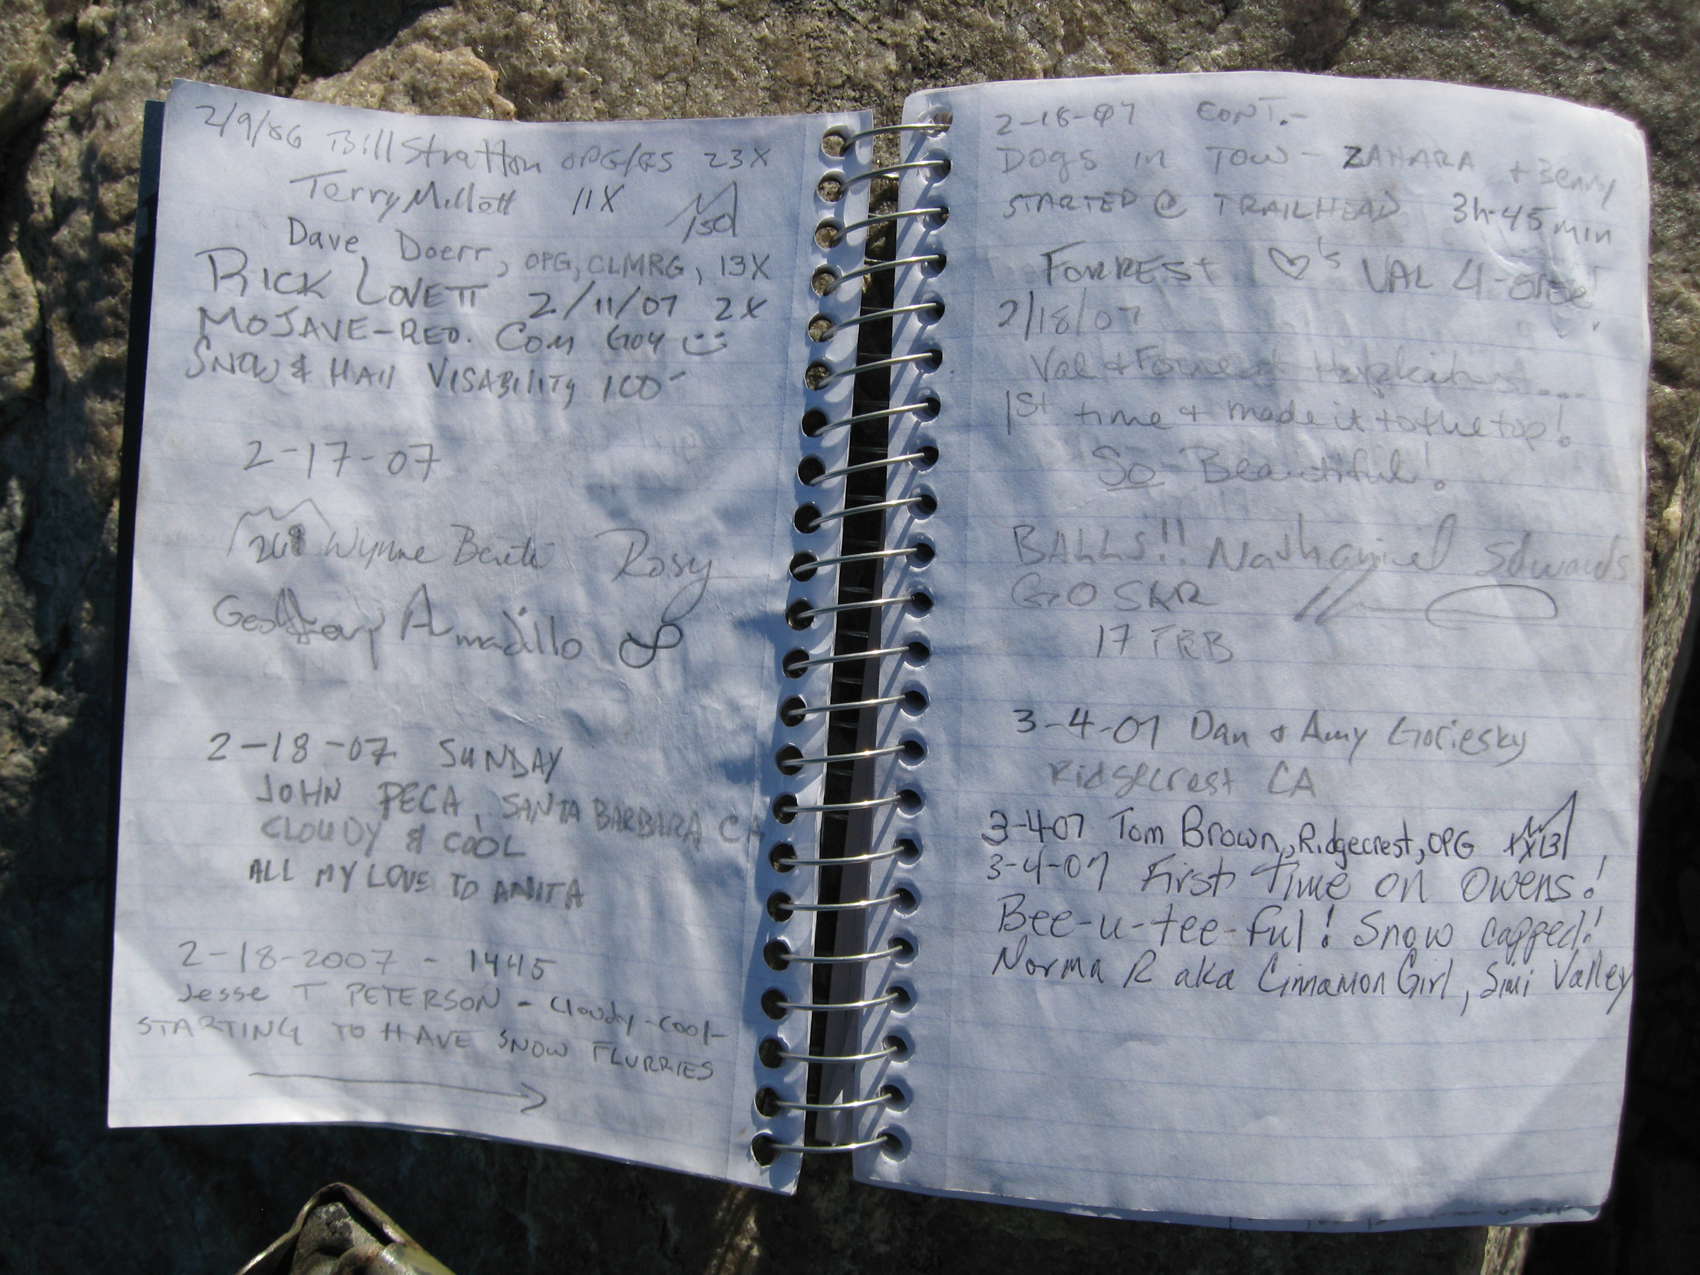 2/9/86 Bill Stratton OPG/GS 23X
Terry Millett 11X
Dave Doerr, OPG, CLMRG, 13X
RICK LOVETT 2/11/07 2X
MOJAVE-RED.COM GOY
SNOW & HAIL VISABILITY 100'
2-17-07
Wynne Rosy
Geoffrey Armadillo
2-18-07 SUNDAY
JOHN PECA, SANTA BARBARA CA
CLOUDY & COOL
ALL MY LOVE TO ANITA
2-18-2007 - 1445
Jesse T PETERSON - cloudy-cool-
STARTING TO HAVE SNOW FLURRIES
2-18-07 CONT.-
DOGS IN TOW - ZAHARA + Benny
STARTED @ TRAILHEAD 3h-45min
FORREST ♡'s VAL
2/18/07
Val & Forrest
1st time & made it to the top!
So Beautiful!
BALLS!! Nathaniel Edwards
GO
17
3-4-07 Dan & Amy Gociesky
Ridgecrest CA
3-4-07 Tom Brown, Ridgecrest, OPG
3-4-07 First Time on Owens!
Bee-u-tee-ful! Snow capped!
Norma R aka Cinnamon Girl, Simi Valley